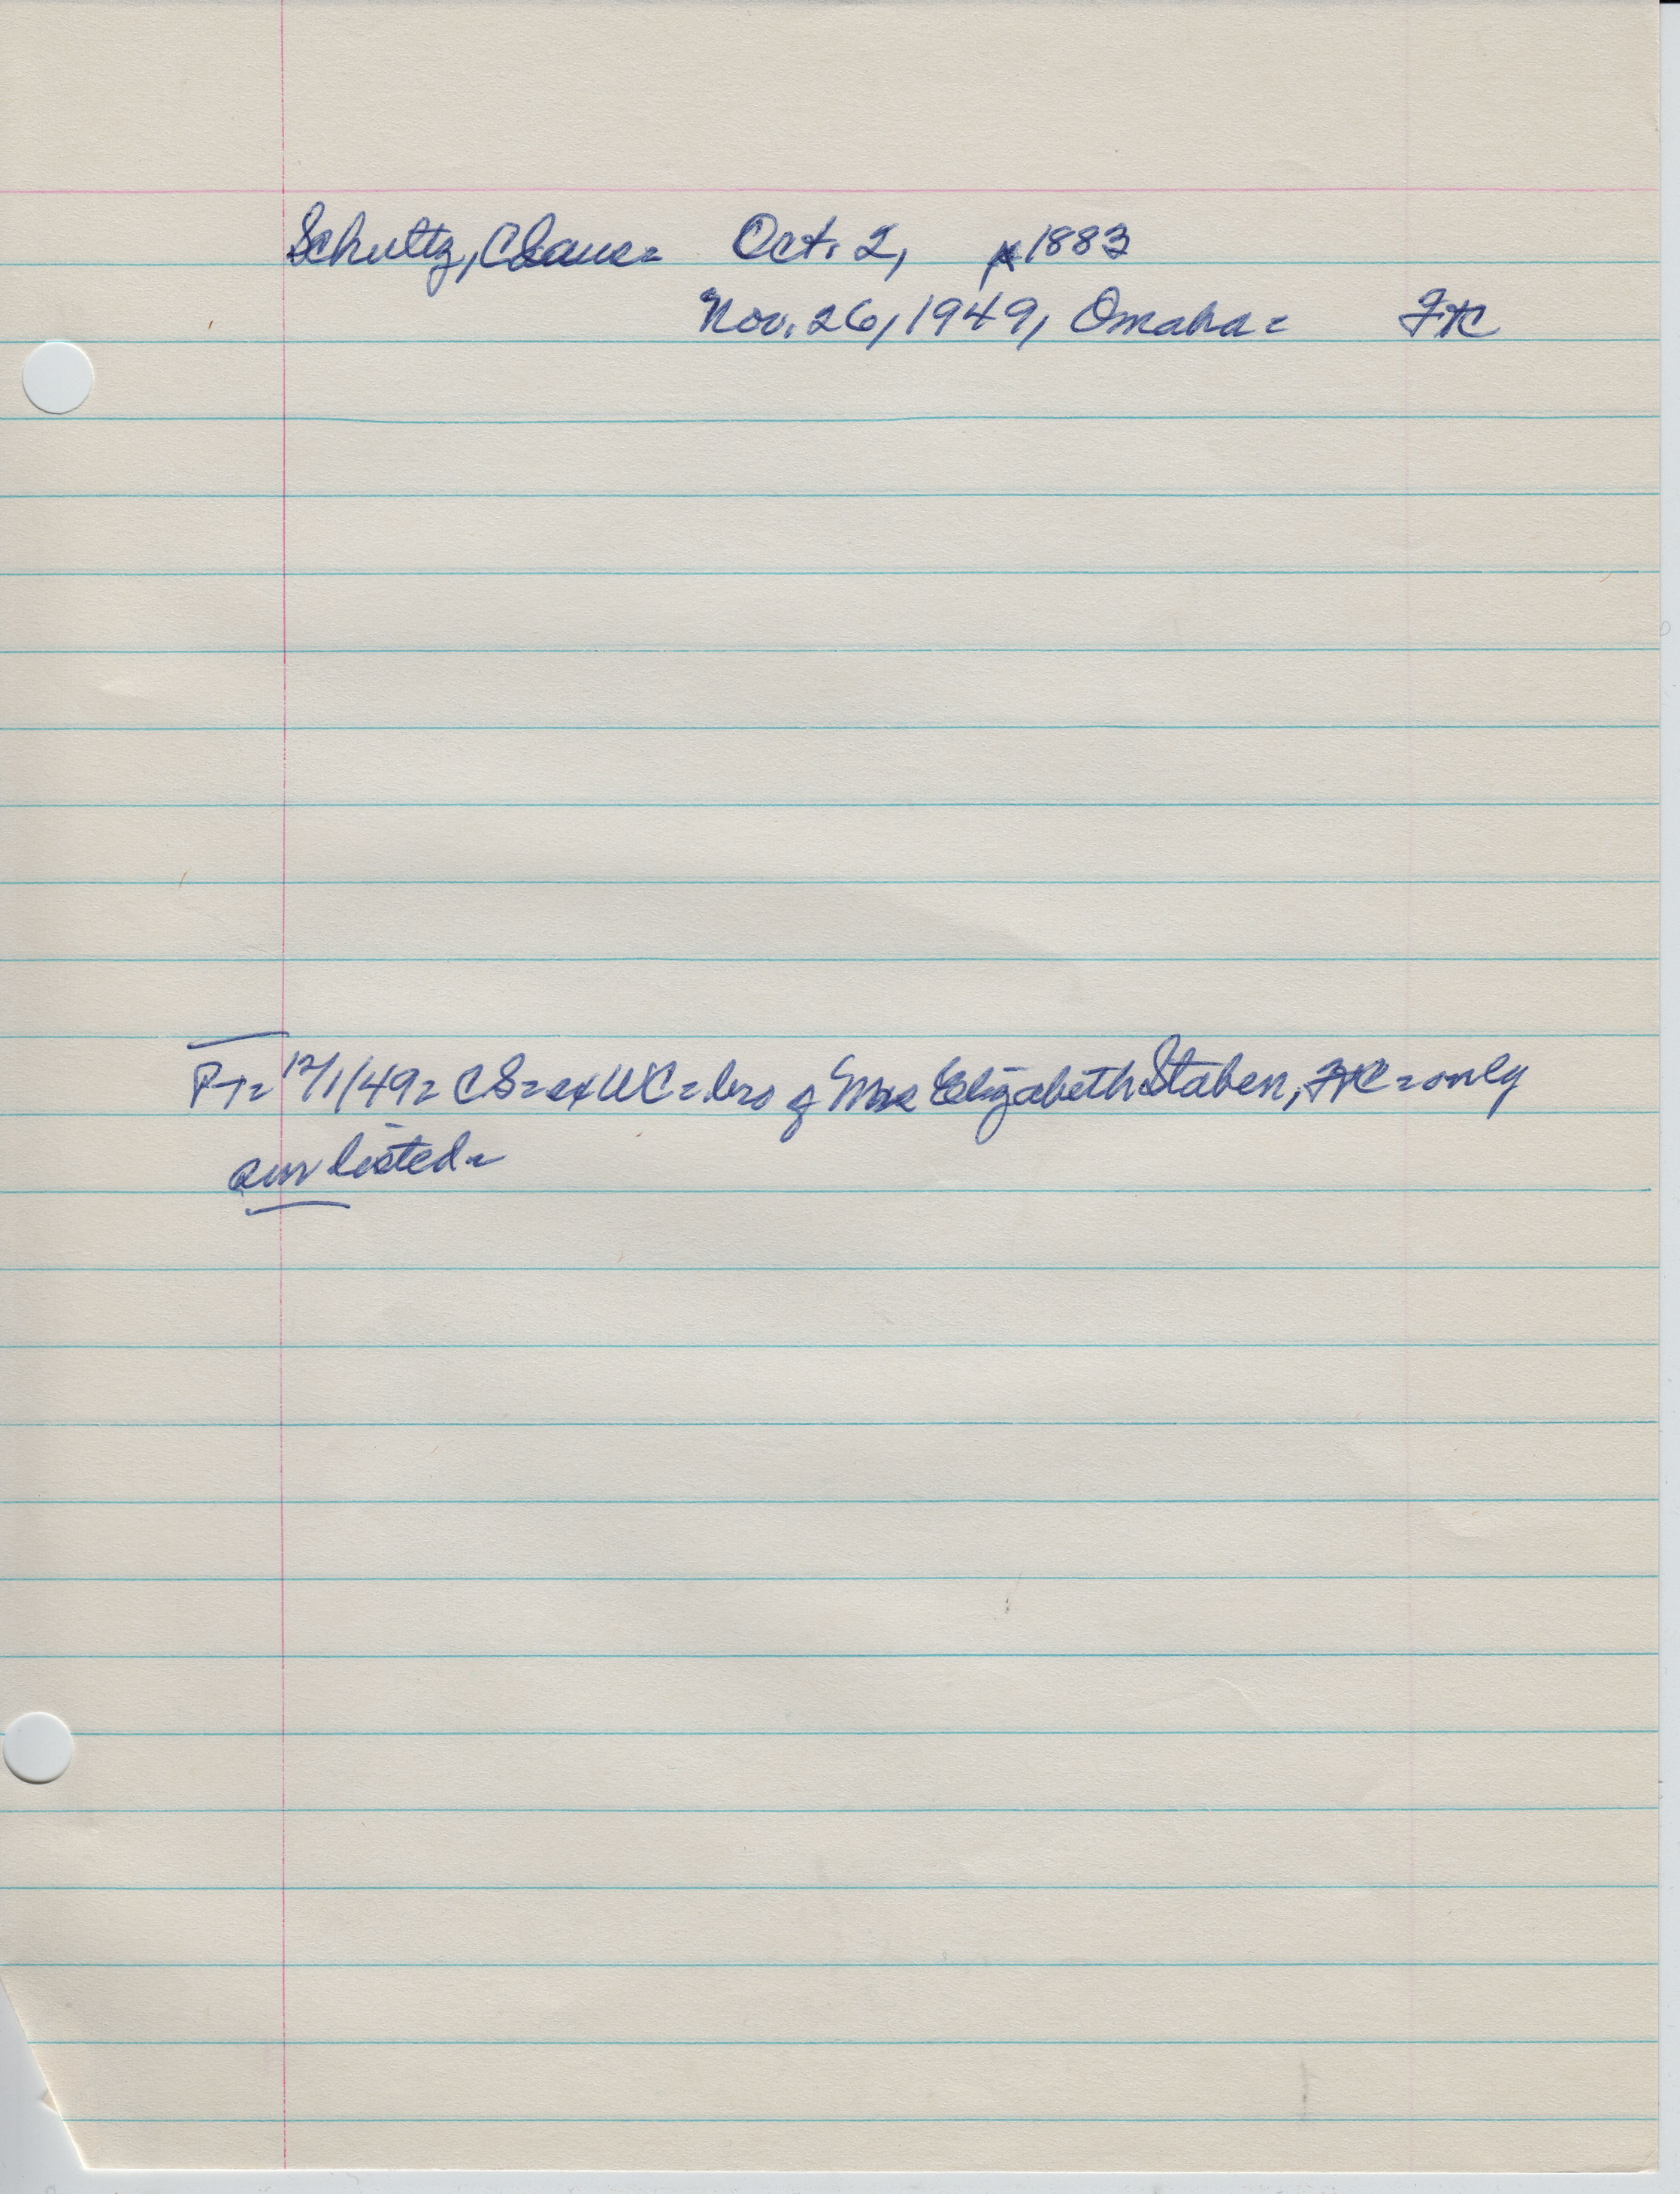 Schultz, Claus= Oct. 2, 1883
Nov. 26, 1949, Omaha= FtC
PT= 12/1/49= CS=ex WC= bro of Mrs Elizabeth Staben, FtC=only
sur listed=